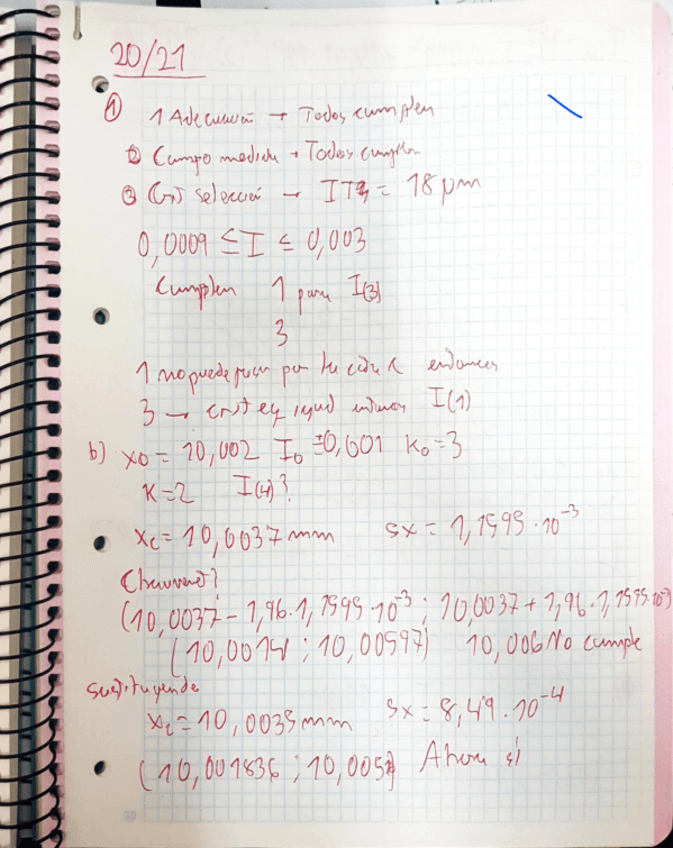 20/21
① 1 Adecuación → Todos cumplen
② Campo medida → Todos cumplen
③ Crit selección → IT = 18 μm
0,0009 ≤ I ≤ 0,003
Cumplen 1 para I(3)
3
1 no puede por entonces
3 → I(1)
b) x0 = 10,002 I0 ±0,001 K0 = 3
K=2 I(4)?
xc = 10,0037 mm sx = 1,1595·10⁻³
Chauvenet?
(10,0037 - 1,96·1,1595·10⁻³ ; 10,0037 + 1,96·1,1595·10⁻³)
( ; 10,00597) 10,006 No cumple
Sustituyendo
xc = 10,0035 mm sx = 8,49·10⁻⁴
(10,001836 ; ) Ahora sí